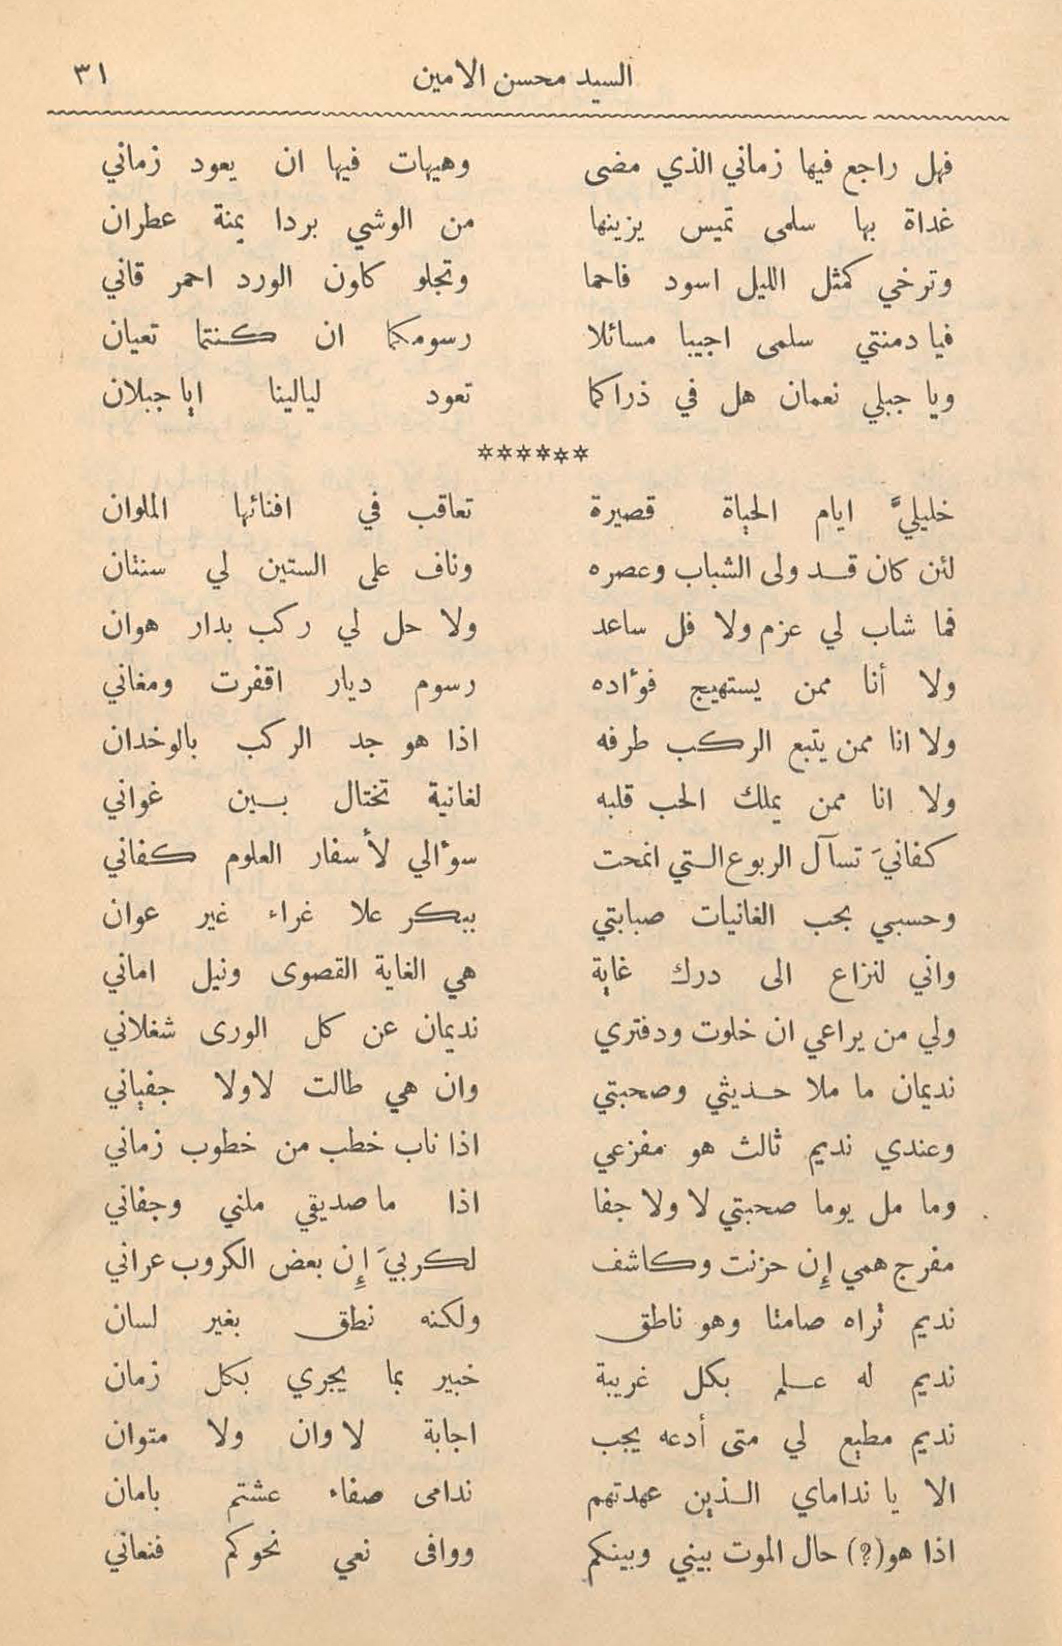 السيد محسن الامين ٣١
فهل راجع فيها زماني الذي مضى وهيهات فيها ان يعود زماني
غداة بها سلمى تميس يزينها من الوشي بردا يمنة عطران
وترخي كمثل الليل اسود فاحما وتجلو كاون الورد احمر قاني
فيا دمنتي سلمى اجيبا مسائلا رسومكما ان كنتما تعيان
ويا جبلي نعمان هل في ذراكما تعود ليالينا ايا جبلان
******
خليليَّ ايام الحياة قصيرة تعاقب في افنائها الملوان
لئن كان قد ولى الشباب وعصره وناف على الستين لي سنتان
فما شاب لي عزم ولا فل ساعد ولا حل لي ركب بدار هوان
ولا أنا ممن يستهيج فوءاده رسوم ديار اقفرت ومغاني
ولا انا ممن يتبع الركب طرفه اذا هو جد الركب بالوخدان
ولا انا ممن يملك الحب قلبه لغانية تختال بين غواني
كفانيَ تسآل الربوع التي انمحت سوءالي لأسفار العلوم كفاني
وحسبي بحب الغانيات صبابتي ببكر علا غراء غير عوان
واني لنزاع الى درك غاية هي الغاية القصوى ونيل اماني
ولي من يراعي ان خلوت ودفتري نديمان عن كل الورى شغلاني
نديمان ما ملا حديثي وصحبتي وان هي طالت لا ولا جفياني
وعندي نديم ثالث هو مفزعي اذا ناب خطب من خطوب زماني
وما مل يوما صحبتي لا ولا جفا اذا ما صديقي ملني وجفاني
مفرج همي إن حزنت وكاشف لكربيَ إن بعض الكروب عراني
نديم تراه صامتا وهو ناطق ولكنه نطق بغير لسان
نديم له علم بكل غريبة خبير بما يجري بكل زمان
نديم مطيع لي متى أدعه يجب اجابة لا وان ولا متوان
الا يا نداماي الذين عهدتهم ندامى صفاء عشتم بامان
اذا هو(؟) حال الموت بيني وبينكم ووافى نعي نحوكم فنعاني